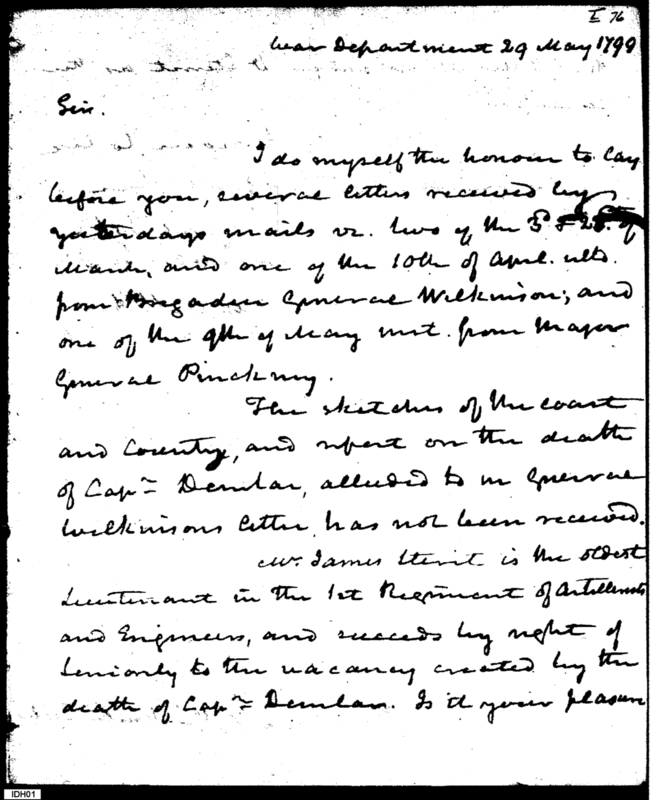 I 76
War Department 29 May 1799
Sir.
I do myself the honour to lay
before you, several letters received by
yesterdays mails vz. two of the 3d & 25th of
March, and one of the 10th of April. ulto.
from Brigadier General Wilkinson; and
one of the 9th of May inst. from Major
General Pinckney.
The sketches of the coast
and Country, and report on the death
of Capn Demlar, alluded to in General
Wilkinsons letter, has not been received.
Mr. James Sterit is the oldest
Lieutenant in the 1st Regiment of Artillerists
and Engineers, and succeeds by right of
Seniority to the vacancy created by the
death of Capn Demlar. Is it your pleasure
IDH01